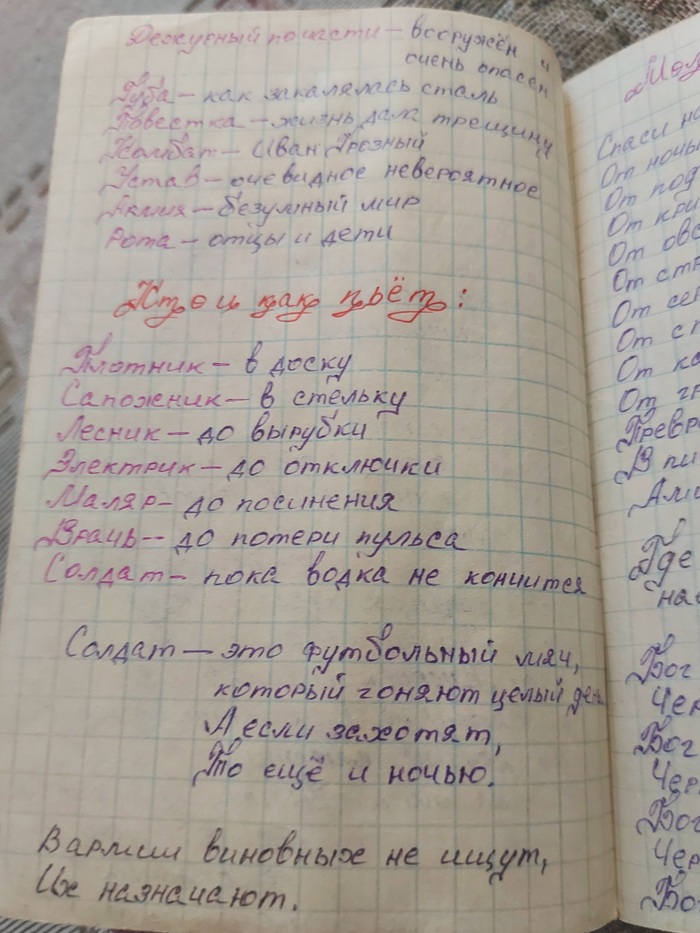 Дежурный по части – вооружён и
очень опасен
Губа – как закалялась сталь
Повестка – жизнь дала трещину
Комбат – Иван Грозный
Устав – очевидное невероятное
Армия – безумный мир
Рота – отцы и дети
Кто и как пьёт:
Плотник – в доску
Сапожник – в стельку
Лесник – до вырубки
Электрик – до отключки
Маляр – до посинения
Врачь – до потери пульса
Солдат – пока водка не кончится
Солдат – это футбольный мяч,
который гоняют целый день
А если захотят,
То ещё и ночью.
В армии виновных не ищут,
Их назначают.
Спаси
От
От
От
От
От
От
От
От
От
В
Где
Бог
Бог